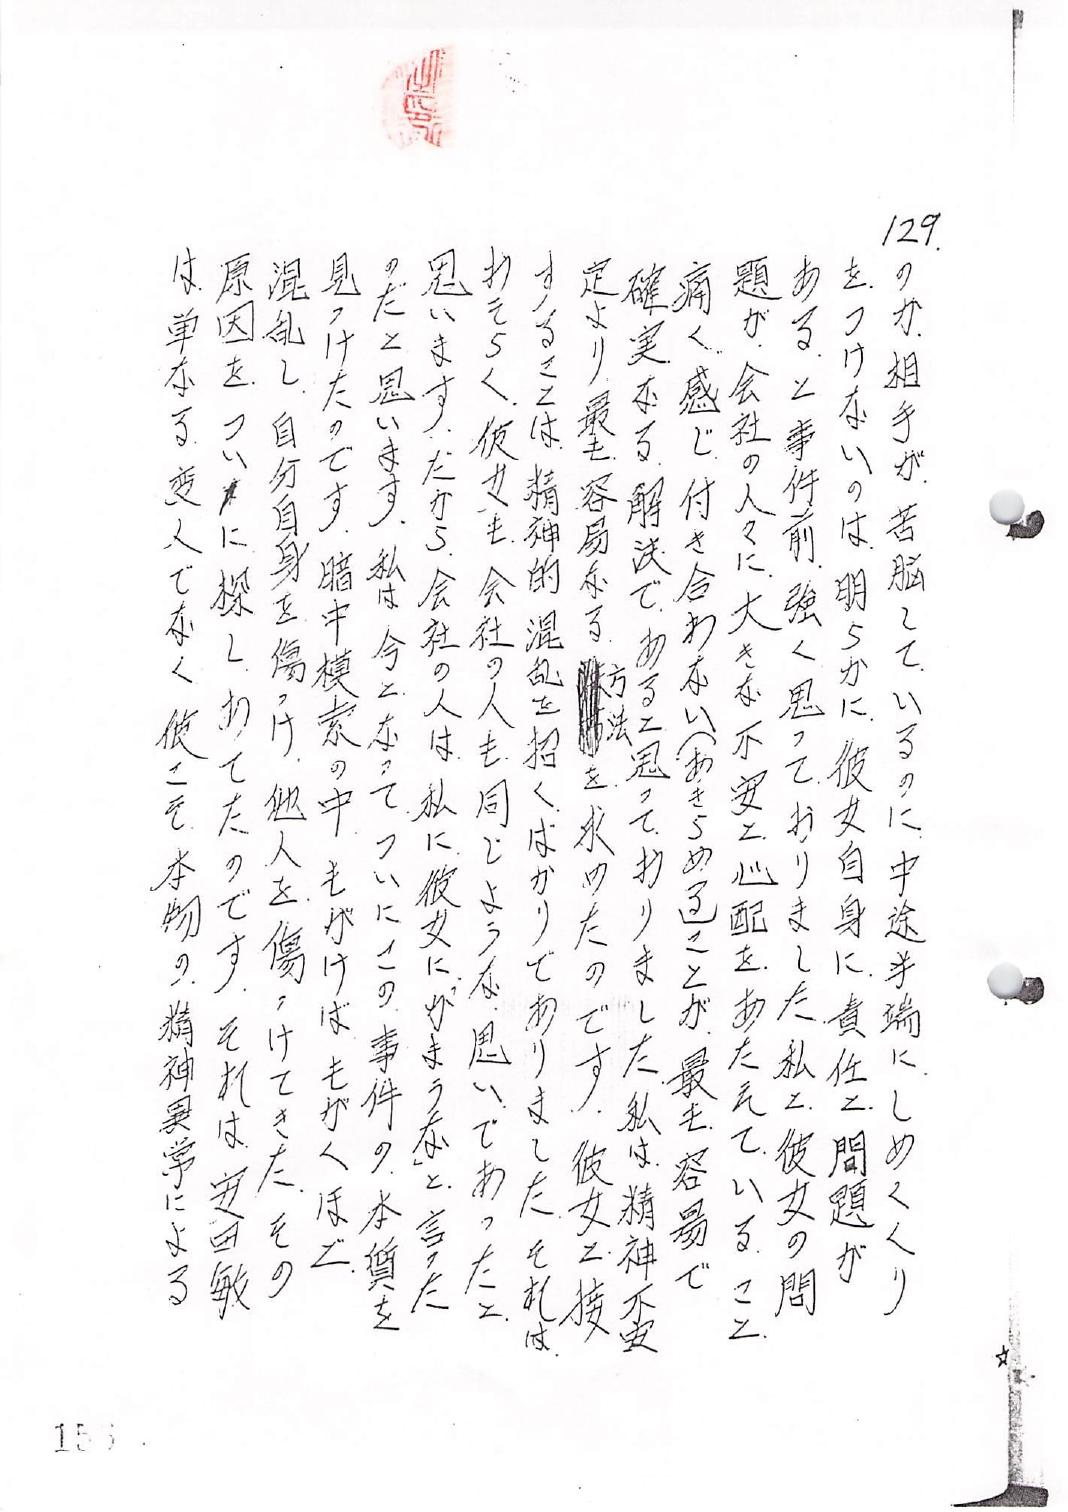 129.
のか、相手が、苦脳して、いるのに、中途半端にしめくくり
をつけないのは、明らかに、彼女自身に、責任と、問題が
ある、と事件前、強く思って、おりました、私と、彼女の問
題が、会社の人々に、大きな不安と、心配を、あたえて、いる、こと、
痛く、感じ、付き合わない(あきらめる)ことが、最も、容易で
確実なる、解決で、あると思って、おりました、私は、精神不安
定より、最も、容易なる、方法を、求めたのです、彼女と、接
することは、精神的、混乱を、招く、ばかりでありました、それは、
おそらく、彼女も、会社の人も、同じような、思い、であったと、
思います、だから、会社の人は、私に、彼女に、かまうな」と、言った
のだと思います、私は、今と、なって、ついにこの、事件の、本質を
見つけたのです、暗中模索の中、もがけば、もがくほど、
混乱し、自分自身を、傷つけ、他人を、傷つけてきた、その
原因を、ついに、探し、あてたのです、それは、安田敏
は、単なる、変人でなく、彼こそ、本物の、精神異常による